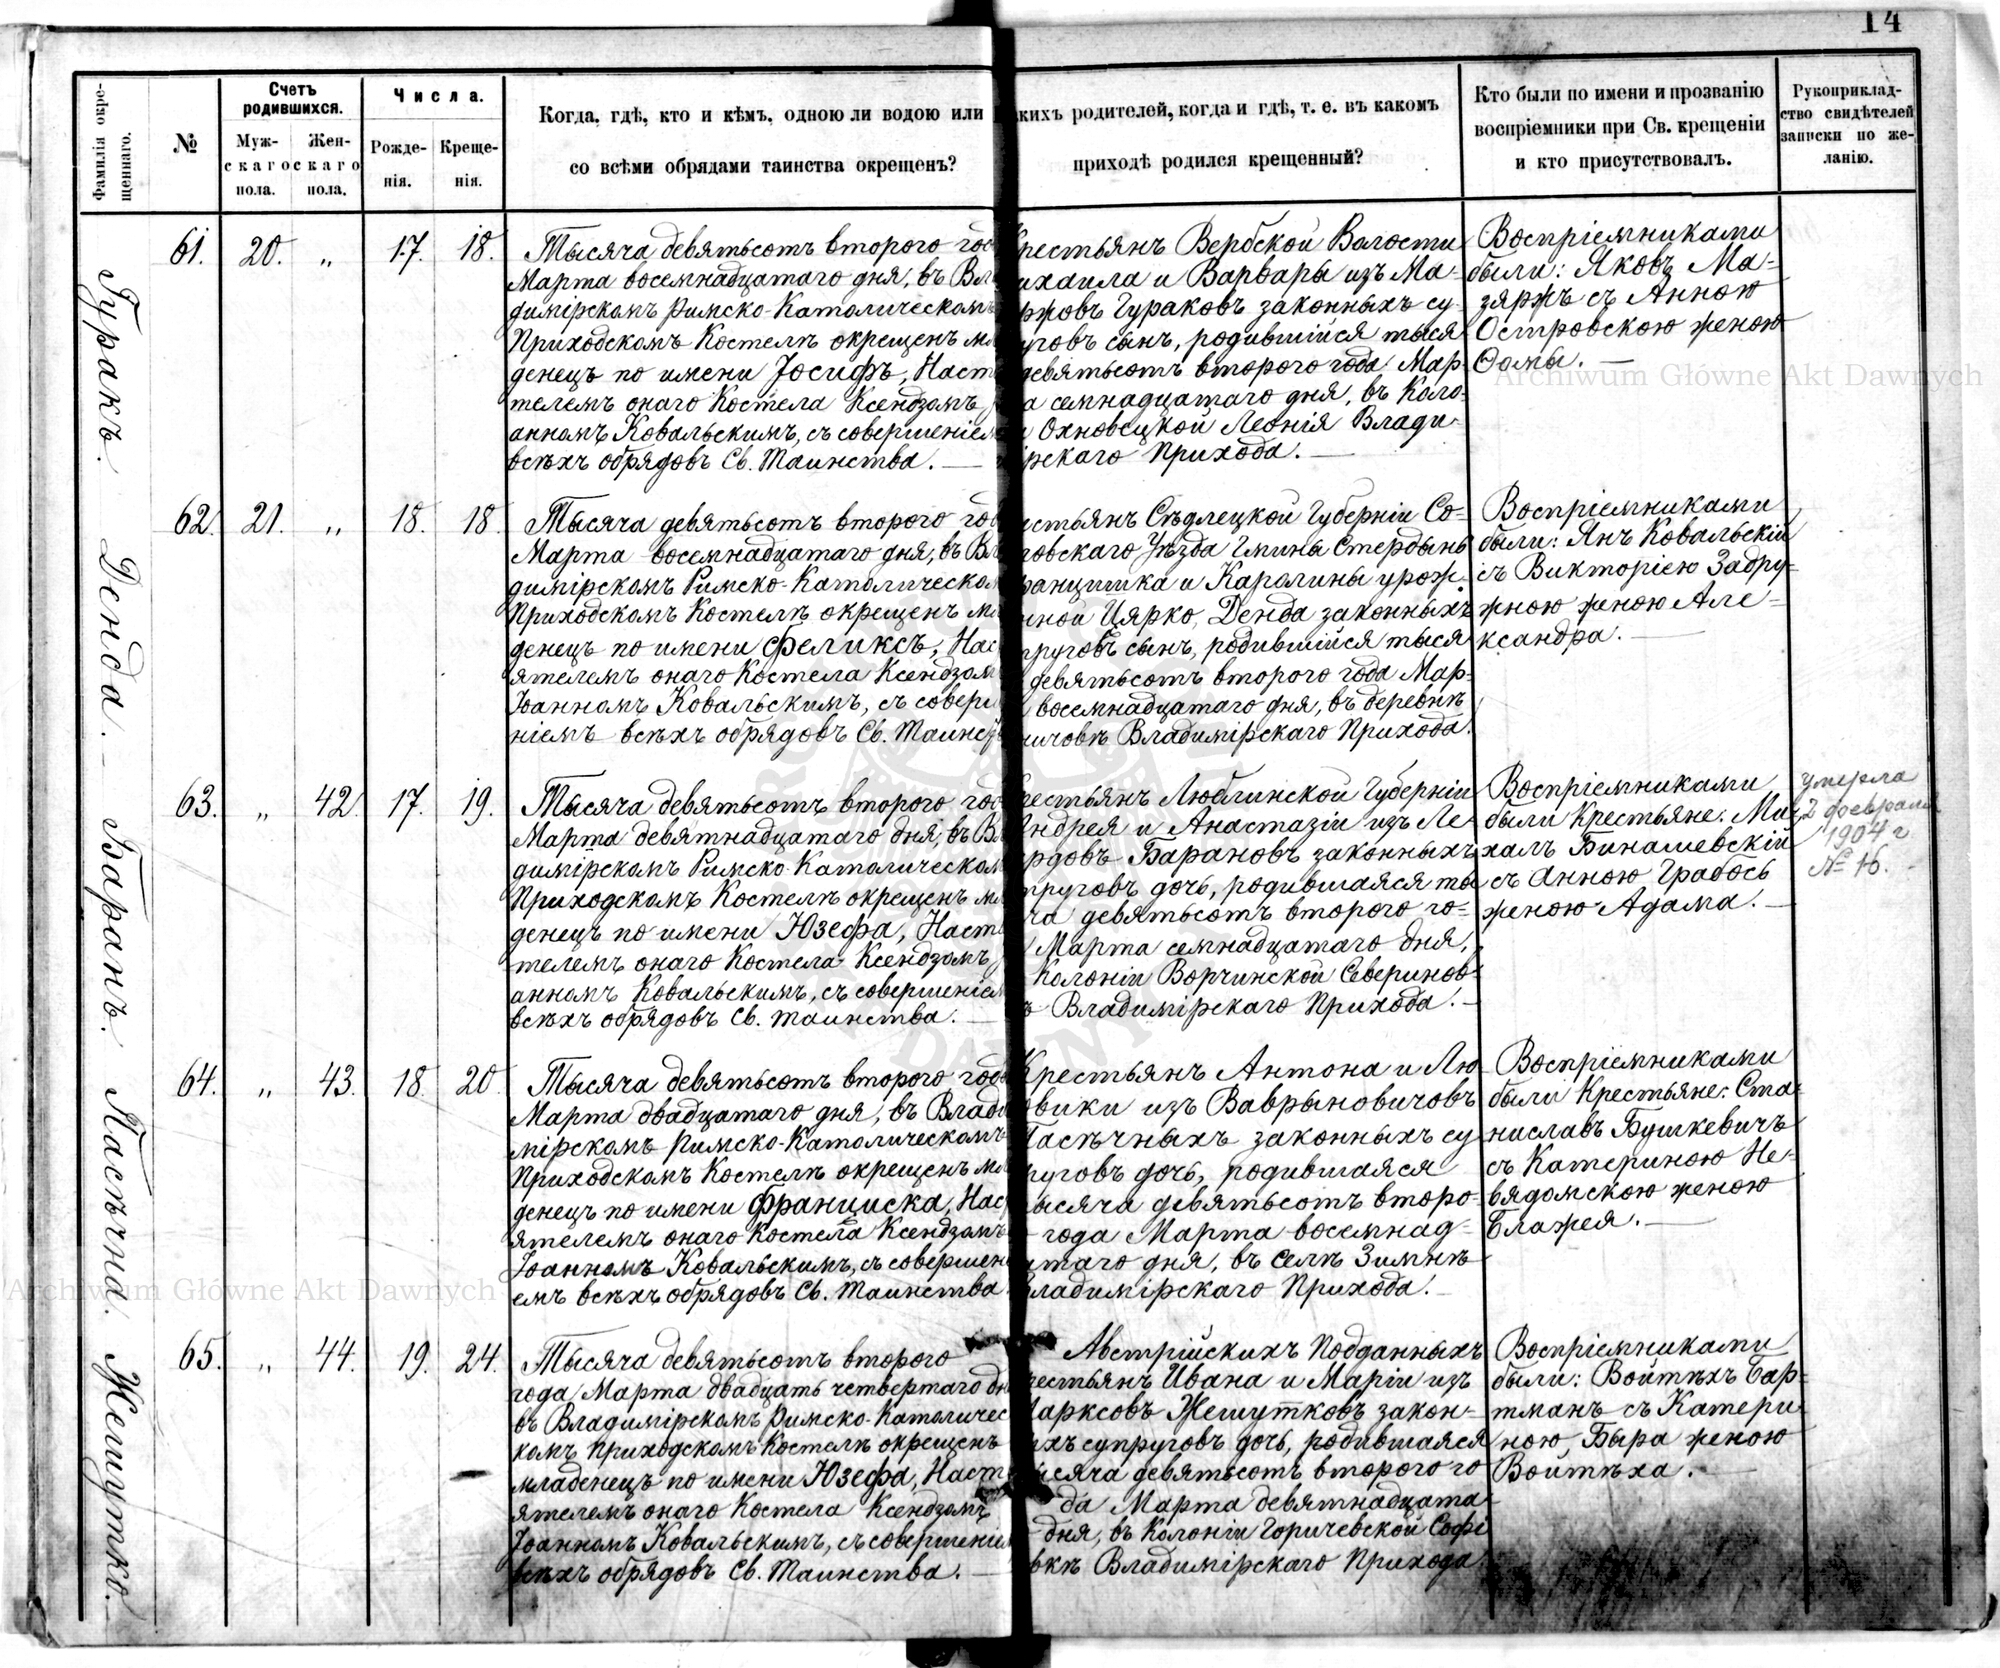 14
Фамилія окре-
щеннаго.
№
Счетъ
родившихся.
Муж-
скаго
пола.
Жен-
скаго
пола.
Числа.
Рожде-
нія.
Креще-
нія.
Когда, гдѣ, кто и кѣмъ, одною ли водою или
со всѣми обрядами таинства окрещенъ?
какихъ родителей, когда и гдѣ, т. е. въ какомъ
приходѣ родился крещенный?
Кто были по имени и прозванію
воспріемники при Св. крещеніи
и кто присутствовалъ.
Рукоприклад-
ство свидѣтелей
записки по же-
ланію.
Гуракъ.
61.
20.
„
17.
18.
Тысяча девятьсотъ второго год
Марта восемнадцатаго дня, въ Вла
димірскомъ Римско-Католическомъ
Приходскомъ Костелѣ окрещенъ мла
денецъ по имени Іосифъ, Насто
телемъ онаго Костела Ксендзомъ
анномъ Ковальскимъ, съ совершеніем
всѣхъ обрядовъ Св. Таинства. —
крестьянъ Вербской Волости
ихаила и Варвары изъ Ма-
ржовъ Гураковъ законныхъ су-
уговъ сынъ, родившійся тыся
девятьсотъ второго года Мар
а семнадцатаго дня, въ Коло-
и Охновецкой Леонія Влади-
мірскаго Прихода. —
Воспріемниками
были: Яковъ Ма-
зяржъ съ Анною
Островскою женою
Ѳомы. —
Archiwum Główne Akt Dawnych
Денда. —
62.
21.
„
18.
18.
Тысяча девятьсотъ второго год
Марта восемнадцатаго дня, въ Вла
димірскомъ Римско-Католическом
Приходскомъ Костелѣ окрещенъ мл
денецъ по имени Феликсъ, Нас
ятелемъ онаго Костела Ксендзом
Іоанномъ Ковальскимъ, съ соверш
ніемъ всѣхъ обрядовъ Св. Таинст
естьянъ Сѣдлецкой Губерніи Со-
ловскаго Уѣзда Гмины Стердынь
ранцишка и Каролины урож-
нной Цярко, Денда законныхъ
пруговъ сынъ, родившійся тыся
девятьсотъ второго года Мар-
восемнадцатаго дня, въ деревнѣ
Владимірскаго Прихода.
Воспріемниками
были: Янъ Ковальскій
съ Викторіею Задру-
жною женою Але-
ксандра. —
Баранъ.
63.
„
42.
17.
19.
Тысяча девятьсотъ второго год
Марта девятнадцатаго дня, въ Вл
димірскомъ Римско-Католическом
Приходскомъ Костелѣ окрещенъ мл
денецъ по имени Юзефа, Насто
телемъ онаго Костела Ксендзомъ
анномъ Ковальскимъ, съ совершеніем
всѣхъ обрядовъ Св. Таинства. —
рестьянъ Люблинской Губерніи
Андрея и Анастазіи изъ Ле-
рдовъ Барановъ законныхъ
пруговъ дочь, родившаяся ты
ча девятьсотъ второго го-
Марта семнадцатаго дня,
Колоніи Ворчинской Севериновъ-
Владимірскаго Прихода. —
Воспріемниками
были Крестьяне: Ми-
халъ Бинашевскій
съ Анною Грабось
женою Адама. —
умерла
2 февраля
1904 г
№ 16.
Пасѣчна.
64.
„
43.
18.
20.
Тысяча девятьсотъ второго года
Марта двадцатаго дня, въ Влади
мірскомъ Римско-Католическомъ
Приходскомъ Костелѣ окрещенъ мла
денецъ по имени Франциска, Наст
ятелемъ онаго Костела Ксендзомъ
Іоанномъ Ковальскимъ, съ совершені
емъ всѣхъ обрядовъ Св. Таинства.
Крестьянъ Антона и Лю
овики изъ Вавриновичовъ
Пасѣчныхъ законныхъ су
руговъ дочь, родившаяся
тысяча девятьсотъ второ-
года Марта восемнад-
цатаго дня, въ селѣ Зимнѣ
Владимірскаго Прихода. —
Воспріемниками
были Крестьяне: Ста-
ниславъ Бушкевичъ
съ Катериною Не-
вядомскою женою
Блажея. —
Archiwum Główne Akt Dawnych
Жешутко.
65.
„
44.
19.
24.
Тысяча девятьсотъ второго
года Марта двадцать четвертаго дн
въ Владимірскомъ Римско-Католичес
комъ Приходскомъ Костелѣ окрещенъ
младенецъ по имени Юзефа, Наст
ятелемъ онаго Костела Ксендзомъ
Іоанномъ Ковальскимъ, съ совершеніем
всѣхъ обрядовъ Св. Таинства. —
Австрійскихъ Подданныхъ
рестьянъ Ивана и Маріи изъ
Марксовъ Жешутковъ закон-
ыхъ супруговъ дочь, родившаяся
тысяча девятьсотъ второго го
да Марта девятнадцата-
дня, въ Колоніи Горичевской Софі
овкѣ Владимірскаго Прихода
Воспріемниками
были: Войтѣхъ Бар-
тманъ съ Катери-
ною Быра женою
Войтѣха. —